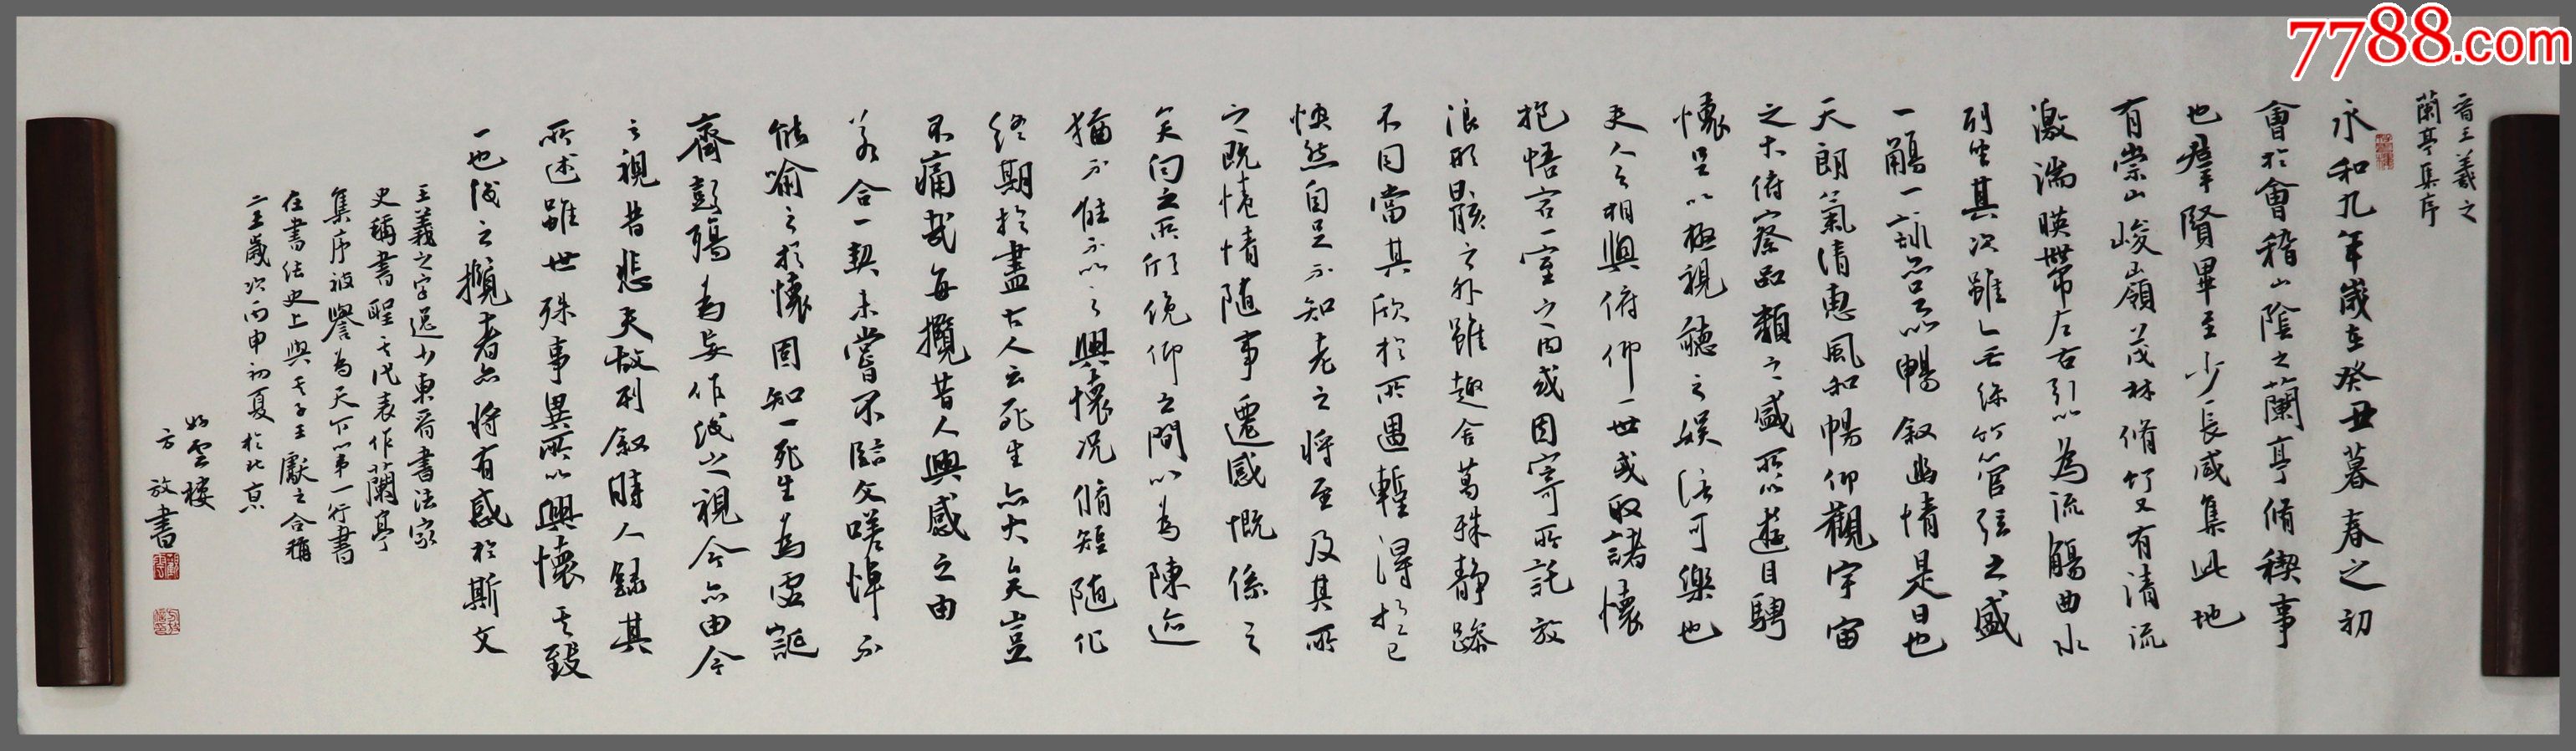 晉王羲之
蘭亭集序
永和九年歲在癸丑暮春之初
會於會稽山陰之蘭亭脩稧事
也羣賢畢至少長咸集此地
有崇山峻嶺茂林脩竹又有清流
激湍暎帶左右引以為流觴曲水
列坐其次雖無絲竹管弦之盛
一觴一詠亦足以暢敘幽情是日也
天朗氣清惠風和暢仰觀宇宙
之大俯察品類之盛所以遊目騁
懷足以極視聽之娛信可樂也
夫人之相與俯仰一世或取諸懷
抱悟言一室之內或因寄所託放
浪形骸之外雖趣舍萬殊靜躁
不同當其欣於所遇蹔得於己
怏然自足不知老之將至及其所
之既惓情隨事遷感慨係之
矣向之所欣俛仰之間以為陳迹
猶不能不以之興懷況脩短隨化
終期於盡古人云死生亦大矣豈
不痛哉每攬昔人興感之由
若合一契未嘗不臨文嗟悼不
能喻之於懷固知一死生為虛誕
齊彭殤為妄作後之視今亦由今
之視昔悲夫故列敘時人錄其
所述雖世殊事異所以興懷其致
一也後之攬者亦將有感於斯文
王羲之字逸少東晉書法家
史稱書聖其代表作蘭亭
集序被譽為天下第一行書
在書法史上與其子王獻之合稱
二王歲次丙申初夏於北京
雲樓
方放書
7788.com